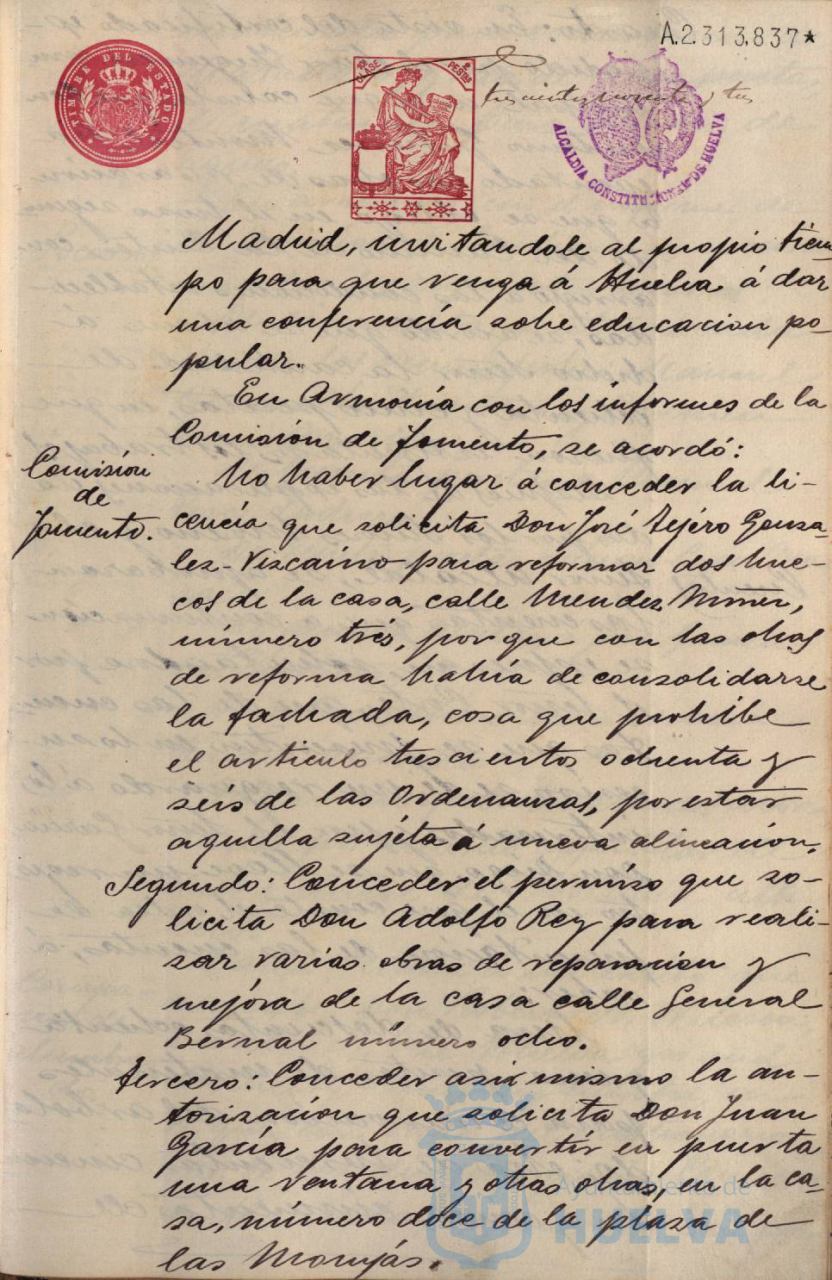 A.2.313.837*
TIMBRE DEL ESTADO
CLASE
PESTAS
trescientos noventa y tres
ALCALDIA CONSTITUCIONAL DE HUELVA
Madrid, invitandole al propio tiem-
po para que venga á Huelva á dar
una conferencía sobre educacion po-
pular.
En Armonía con los informes de la
Comisión de Fomento, se acordó:
Comisión
de
Fomento.
No haber lugar á conceder la li-
cencia que solicita Don José Tejéro Gonza-
lez-Vizcaino para reformar dos hue-
cos de la casa, calle Mendez Nuñez,
número trés, por que con las obras
de reforma había de consolidarse
la fachada, cosa que prohibe
el articulo trescientos ochenta y
séis de las Ordenanzas, por estar
aquella sujéta á nueva alineación.
Segundo: Conceder el permiso que so-
licita Don Adolfo Rey para reali-
zar varias obras de reparacion y
mejóra de la casa calle General
Bernal número ocho.
Tercero: Conceder asi mismo la au-
torización que solicita Don Juan
García para convertír en puerta
una ventana y otras obras, en la ca-
sa, número doce de la plaza de
las Monjás.
Ayuntamiento de
HUELVA